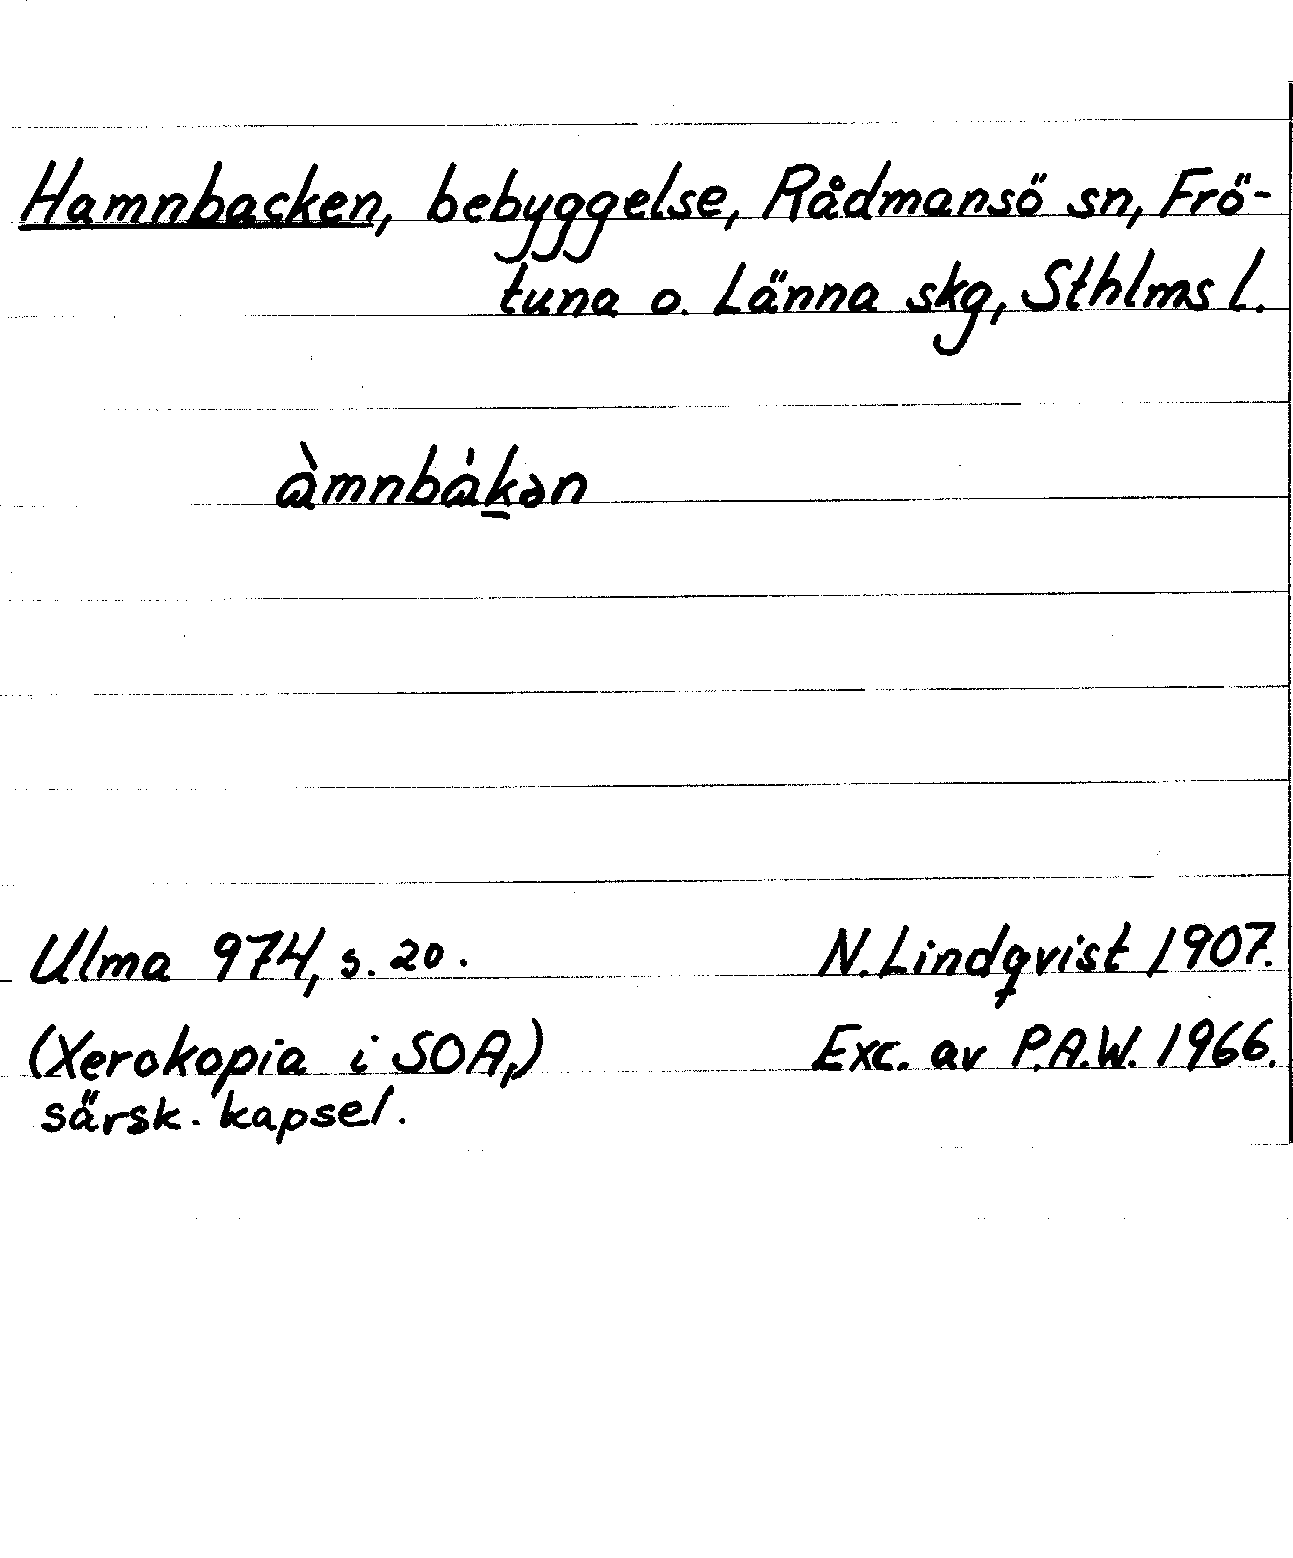 Hamnbacken, bebyggelse, Rådmansö sn, Frö-
tuna o. Länna skg, Sthlms l.
àmnbȧḵən
Ulma 974, s. 20. N. Lindqvist 1907.
(Xerokopia i SOA,) Exc. av P.A.W. 1966.
särsk. kapsel.